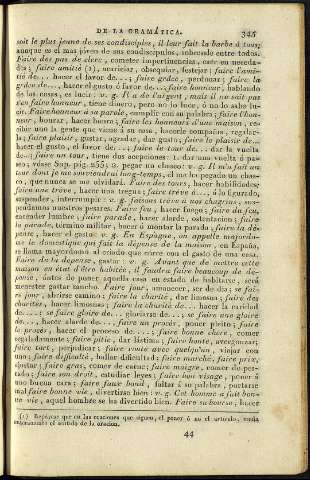 DE LA GRAMÁTICA. 345
soit le plus jeune de ses condisciples, il leur fait la barbe à tous;
aunque es el mas jóven de sus discípulos, sobresale entre todos.
Faire des pas de clerc, cometer impertinencias, caer en necedades;
faire amitié (1), acariciar, obsequiar, festejar; faire l'amitié
de... hacer el favor de...; faire grâce, perdonar; faire la
grâce de... hacer el favor de...; faire honneur, hablando
de las cosas, es lucir: v. g. Il a de l'argent, mais il ne sait pas
s'en faire honneur, tiene dinero, pero no lo luce, ó no lo sabe lucir.
Faire honneur à sa parole, cumplir con su palabra; faire l'honneur,
honrar, hacer honra; faire les honneurs d'une maison, recibir
uno la gente que viene á su casa, hacerle compañía, regalarla;
faire plaisir, gustar, agradar, dar gusto; faire le plaisir de...
hacer el gusto, el favor de...; faire le tour de... dar la vuelta
de...; faire un tour, tiene dos acepciones: 1. dar una vuelta á paseo,
véase Sup. pág. 255; 2. pegar un chasco: v. g. Il m'a fait un
tour dont je me souviendrai long-temps, él me ha pegado un chasco,
que nunca se me olvidará. Faire des tours, hacer habilidades;
faire une trêve, hacer una tregua; faire trêve à... á lo figurado,
suspender, interrumpir: v. g. faisons trêve à nos chagrins, suspendamos
nuestros pesares. Faire feu, hacer fuego; faire du feu,
encender lumbre; faire parade, hacer alarde, ostentacion; faire
la parade, término militar, hacer ó montar la parada; faire la dépense,
hacer el gasto: v. g. En Espagne, on appelle majordome
le domestique qui fait la dépense de la maison, en España,
se llama mayordomo al criado que corre con el gasto de una casa.
Faire de la dépense, gastar: v. g. Avant que de mettre cette
maison en état d'être habitée, il faudra faire beaucoup de dépense,
ántes de poner aquella casa en estado de habitarse, será
menester gastar mucho. Faire jour, amanecer, ser de dia; se faire
jour, abrirse camino; faire la charité, dar limosna; faire des
charités, hacer limosnas; faire la charité de... hacer la caridad
de...; se faire gloire de... gloriarse de...; se faire une gloire
de... hacer alarde de...; faire un procès, poner pleito; faire
le procès, hacer el proceso de...; faire bonne chère, comer
regaladamente; faire pitié, dar lástima; faire honte, avergonzar;
faire tort, perjudicar; faire route avec quelqu'un, viajar con
uno; faire difficulté, hallar dificultad; faire marché, faire prix,
ajustar; faire gras, comer de carne; faire maigre, comer de pescado;
faire son droit, estudiar leyes; faire bon visage, poner á
uno buena cara; faire faux bond, faltar á su palabra, portarse
mal; faire bonne vie, divertirse bien: v. g. Cet homme a fait bonne
vie, aquel hombre se ha divertido bien. Faire sa bourse, hacer
(1) Repárese que en las oraciones que siguen, el poner ó no el artículo, muda
enteramente el sentido de la oracion.
44